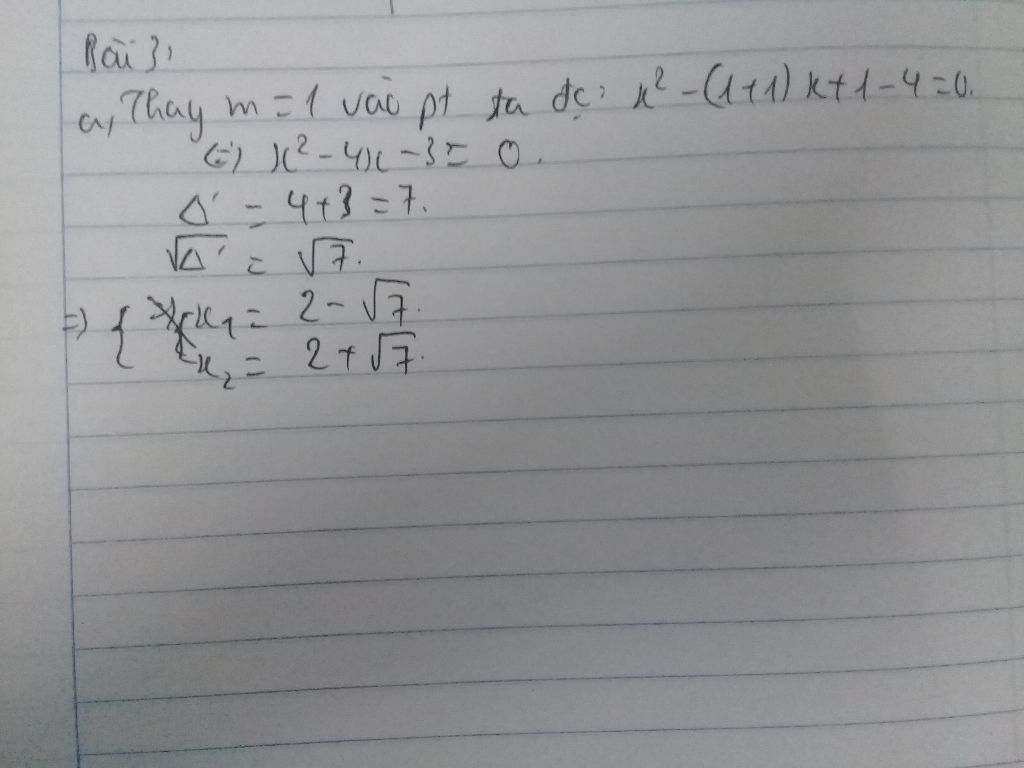 Bài 3,
a, Thay m = 1 vào pt ta đc: x² - (1+1) x + 1 - 4 = 0.
(=) x² - 4x - 3 = 0.
Δ' = 4 + 3 = 7.
√Δ' = √7.
=) { x₁ = 2 - √7.
x₂ = 2 + √7.